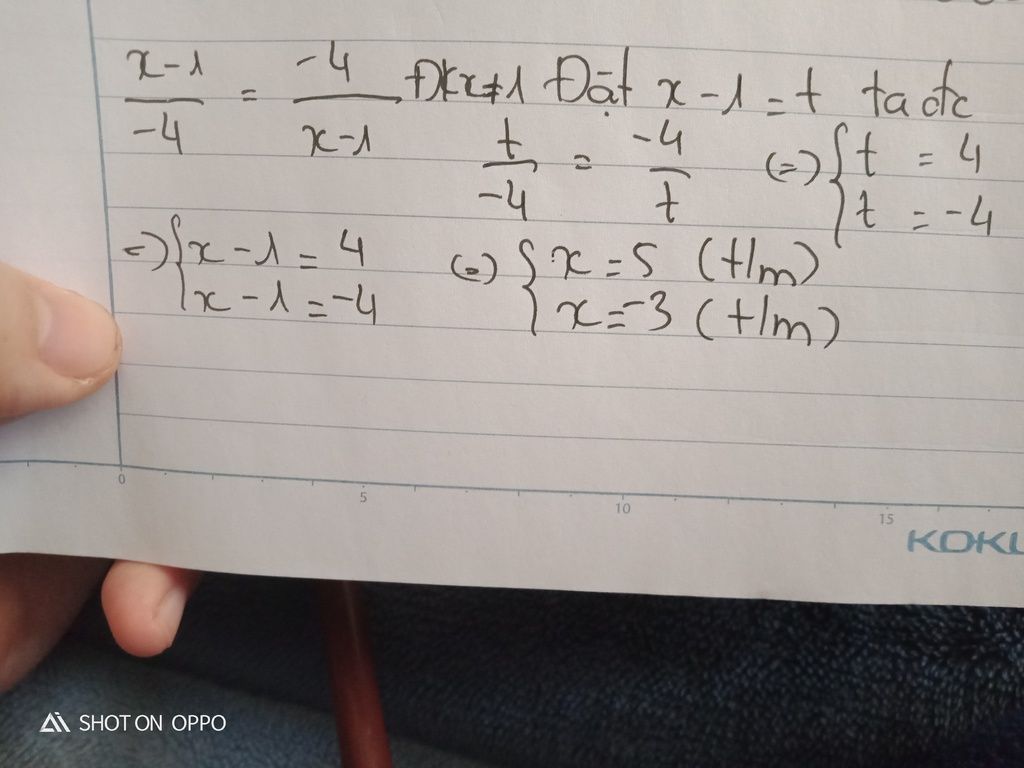 x-1/-4 = -4/x-1 ĐK x≠1 Đặt x-1=t ta đc
t/-4 = -4/t (=) { t = 4
{ t = -4
=) { x-1 = 4 (=) { x=5 (t/m)
{ x-1 = -4 { x=-3 (t/m)
0 5 10 15
KOKU
SHOT ON OPPO